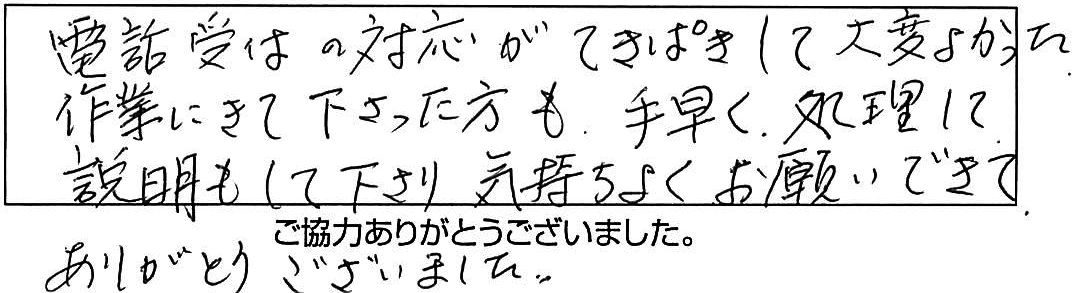 電話受けの対応がてきぱきして大変よかった
作業にきて下さった方も、手早く、処理して
説明もして下さり気持ちよくお願いできて、
ご協力ありがとうございました。
ありがとうございました。